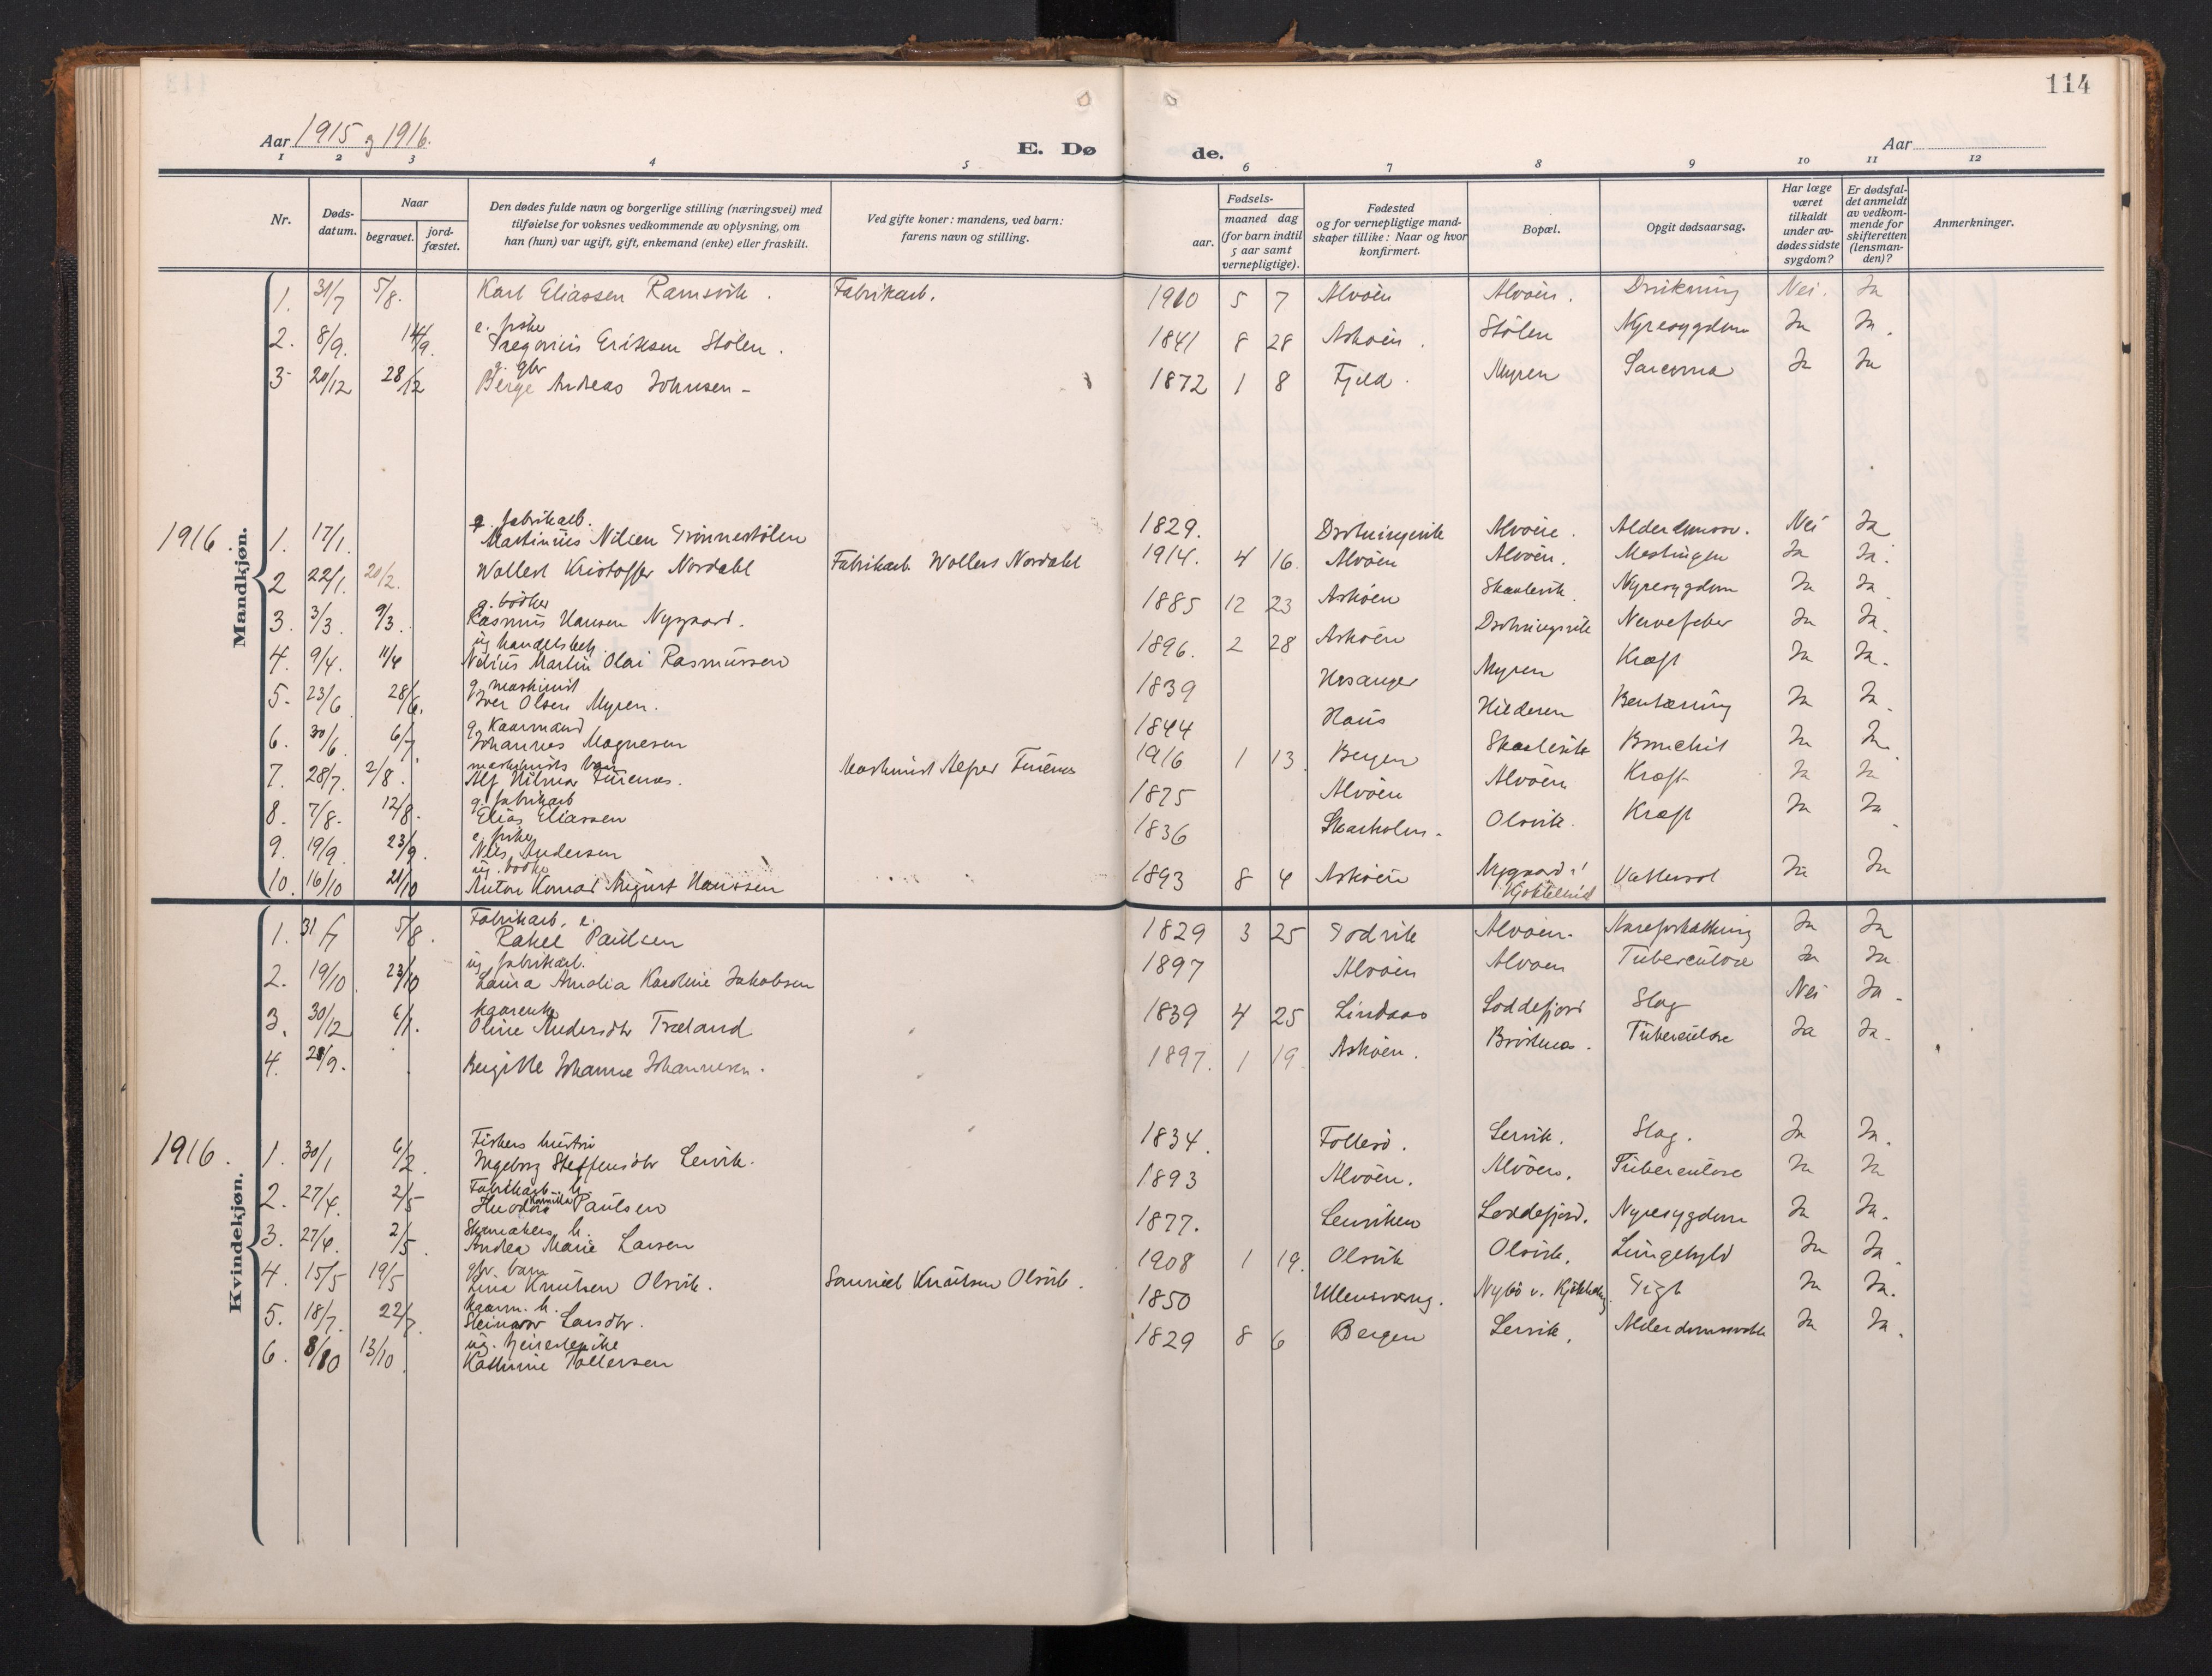 114
Aar 1915 og 1916.
E. Dø
de.
Aar
1 2 3 4 5 6 7 8 9 10 11 12
Nr.
Døds-
datum.
Naar
begravet.
jord-
fæstet.
Den dødes fulde navn og borgerlige stilling (næringsvei) med
tilføielse for voksnes vedkommende av oplysning, om
han (hun) var ugift, gift, enkemand (enke) eller fraskilt.
Ved gifte koner: mandens, ved barn:
farens navn og stilling.
Fødsels-
aar.
maaned dag
(for barn indtil
5 aar samt
vernepligtige).
Fødested
og for vernepligtige mand-
skaper tillike: Naar og hvor
konfirmert.
Bopæl.
Opgit dødsaarsag.
Har læge
været
tilkaldt
under av-
dødes sidste
sygdom?
Er dødsfal-
det anmeldt
av vedkom-
mende for
skifteretten
(lensman-
den)?
Anmerkninger.
Mandkjøn.
1. 31/7 5/8. Karl Eliassen Ramsvik. Fabrikarb. 1910 5 7 Alvøen Alvøen. Drukning Nei. Ja
e. fisker
2. 8/9. 14/9. Gregorius Eriksen Stølen. 1841 8 28 Askøen. Stølen Nyresygdom Ja Ja.
g. gbr
3 20/12 28/12 Berge Andreas Johnsen - 1872 1 8 Fjeld. Myren Sarcoma Ja Ja
1916.
g. fabrikarb.
1. 17/1. Martinius Nilsen Grønnestølen 1829. Drotningvik Alvøen. Nei Ja
2 22/1. 20/2. Wollert Kristoffer Nordahl Fabrikarb. Wollert Nordahl 1914. 4 16. Alvøen Alvøen. Meslingen Ja Ja.
g. bødker
3. 3/3. 9/3. Rasmus Hansen Nygaard. 1885 12 23 Askøen Skaalevik. Nyresygdom Ja Ja.
ug handelsbetj.
4. 9/4. 11/4 Nilius Martin Olai Rasmussen 1896. 2 28 Askøen Drotningsvik Nervefeber Ja Ja.
g. maskinist
5. 23/6 28/6. Iver Olsen Myren. 1839 Hosanger Myren Kræft Ja Ja.
g. Kaarmand
6. 30/6. 6/7 Johannes Magnesen 1844 Haus Hilderen Bentæring Ja Ja.
maskinists barn
7. 28/7. 2/8. Alf Hilmar Furenes. Maskinist Furenes 1916 1 13. Bergen Skaalevik Bronchit Ja Ja.
g. fabrikarb
8. 7/8. 12/8. Elias Eliassen 1875 Alvøen Alvøen Kræft Ja Ja
e. fisker
9. 19/9. 23/9. Nils Andersen 1836 Skarholm. Olsvik. Kræft Ja Ja.
ug. bødker
10. 16/10 21/10 Anton Konrad August Hanssen 1893 8 4 Askøen Nygaard i Vattersot Ja Ja
Kvindekjøn.
Fabrikarb. e.
1. 31/7 5/8. Rakel Paulsen 1829 3 25 Godvik Alvøen. Aareforkalkning Ja Ja
ug fabrikarb.
2. 19/10. 23/10 Laura Amalia Karoline Jakobsen 1897 Alvøen Alvøen Tuberculose Ja Ja
Kaarenke
3. 30/12 6/1. Oline Andersdtr Træland 1839 4 25 Lindaas Loddefjord Slag Nei Ja.
4. 28/9. Birgitte Johanne Johannesen. 1897. 1 19. Askøen. Tuberculose Ja Ja.
1916.
Fiskers hustru
1. 30/1 6/2. Ingeborg Steffensdtr Lervik. 1834. Follesø. Lervik. Slag. Ja Ja.
Fabrikarb. h.
2. 27/4. 2/5 Theodora Kamilla Paulsen 1893 Alvøen. Alvøen. Tuberculose Ja Ja
Skomakers h.
3. 27/4. 2/5. Andrea Marie Larsen 1877. Loddefjord. Nyresygdom Ja Ja.
gbr. barn
4. 15/5 19/5 Lina Knutsen Olsvik. Samuel Knutsen Olsvik. 1908 1 19. Olsvik Olsvik. Lungebyld Ja Ja.
Kaarm. h.
5. 18/7. 22/7. Steinvor Larsdtr. 1850 Ullensvang. Nybø v. Gigt Ja Ja.
ug.
6. 8/10 13/10. Kathrine Tollersen 1829 8 6 Bergen Lervik. Alderdomssvakh Ja Ja.